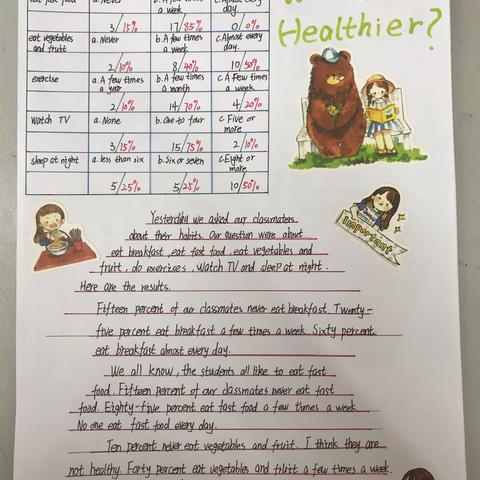 a. Never
b. A few times a week
day.
3/15%
17/85%
0/0%
Healthier?
eat vegetables and fruit
a. Never
b. A few times a week
c. Almost every day.
2/10%
8/40%
10/50%
exercise
a. A few times a year
b. A few times a month
c. A Few times a week
2/10%
14/70%
4/20%
Watch TV
a. None
b. One to four
c. Five or more
3/15%
15/75%
2/10%
sleep at night
a. less than six
b. Six or seven
c. Eight or more
5/25%
5/25%
10/50%
Important
Yesterday we asked our classmates
about their habits. Our question were about
eat breakfast, eat fast food, eat vegetables and
fruit, do exercises, Watch TV and sleep at night.
Here are the results.
Fifteen percent of our classmates never eat breakfast. Twenty-
five percent eat breakfast a few times a week. Sixty percent
eat breakfast almost every day.
We all know, the students all like to eat fast
food. Fifteen percent of our classmates never eat fast
food. Eighty-five percent eat fast food a few times a week
No one eat fast food every day.
Ten percent never eat vegetables and fruit. I think they are
not healthy. Forty percent eat vegetables and fruit a few times a week.